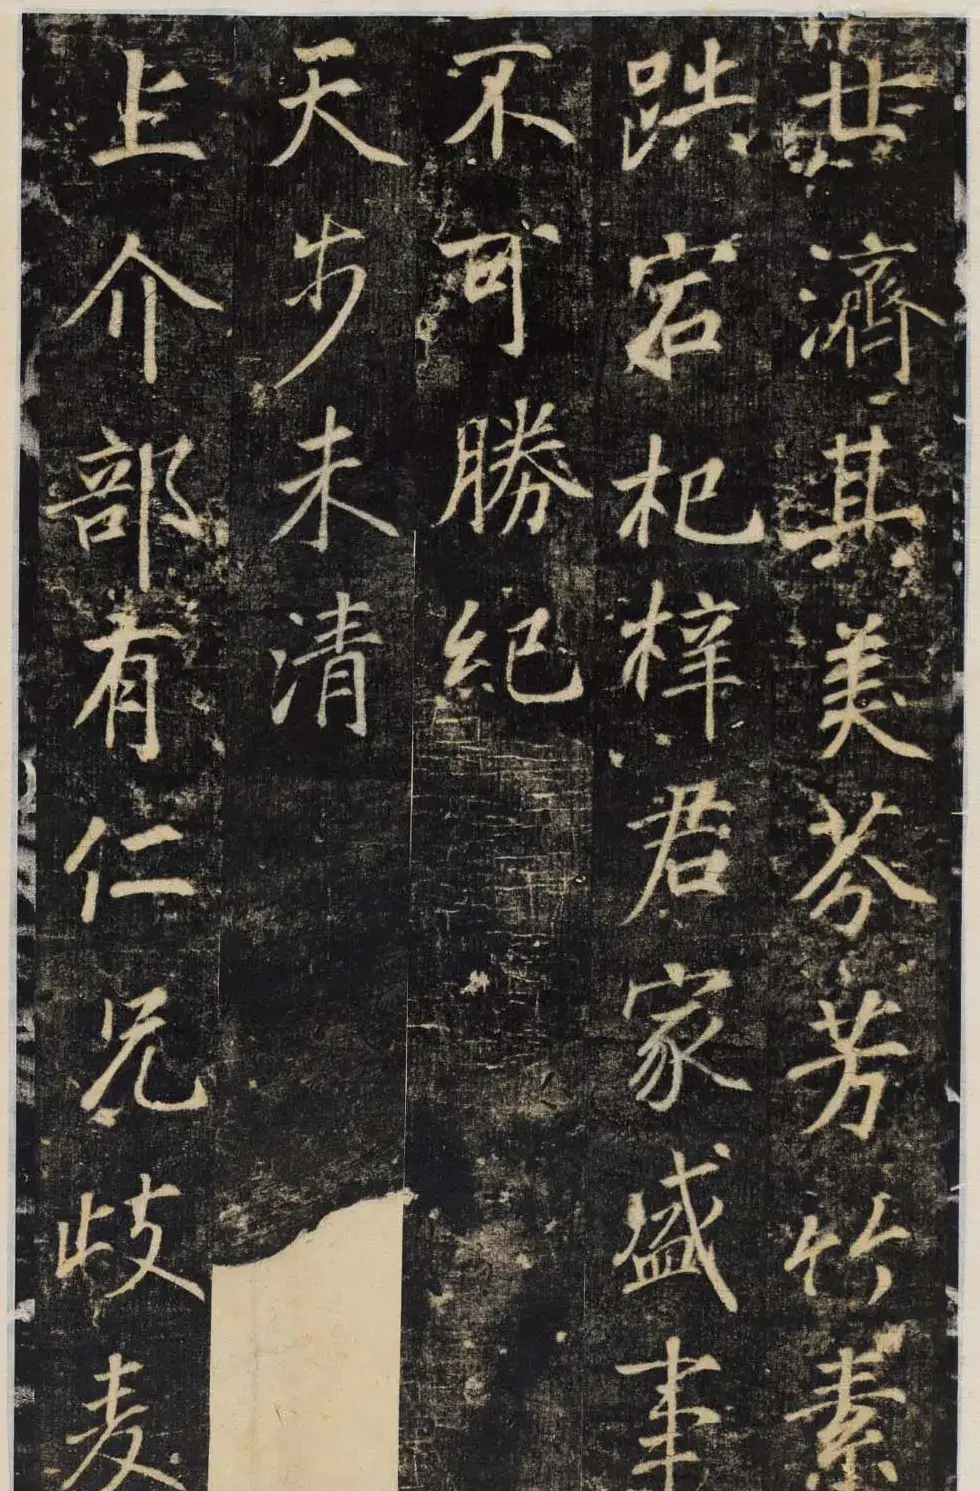 世濟其美芬芳竹素
宕杞梓君家盛事
不可勝紀
天步未清
上介部有仁兄歧麦